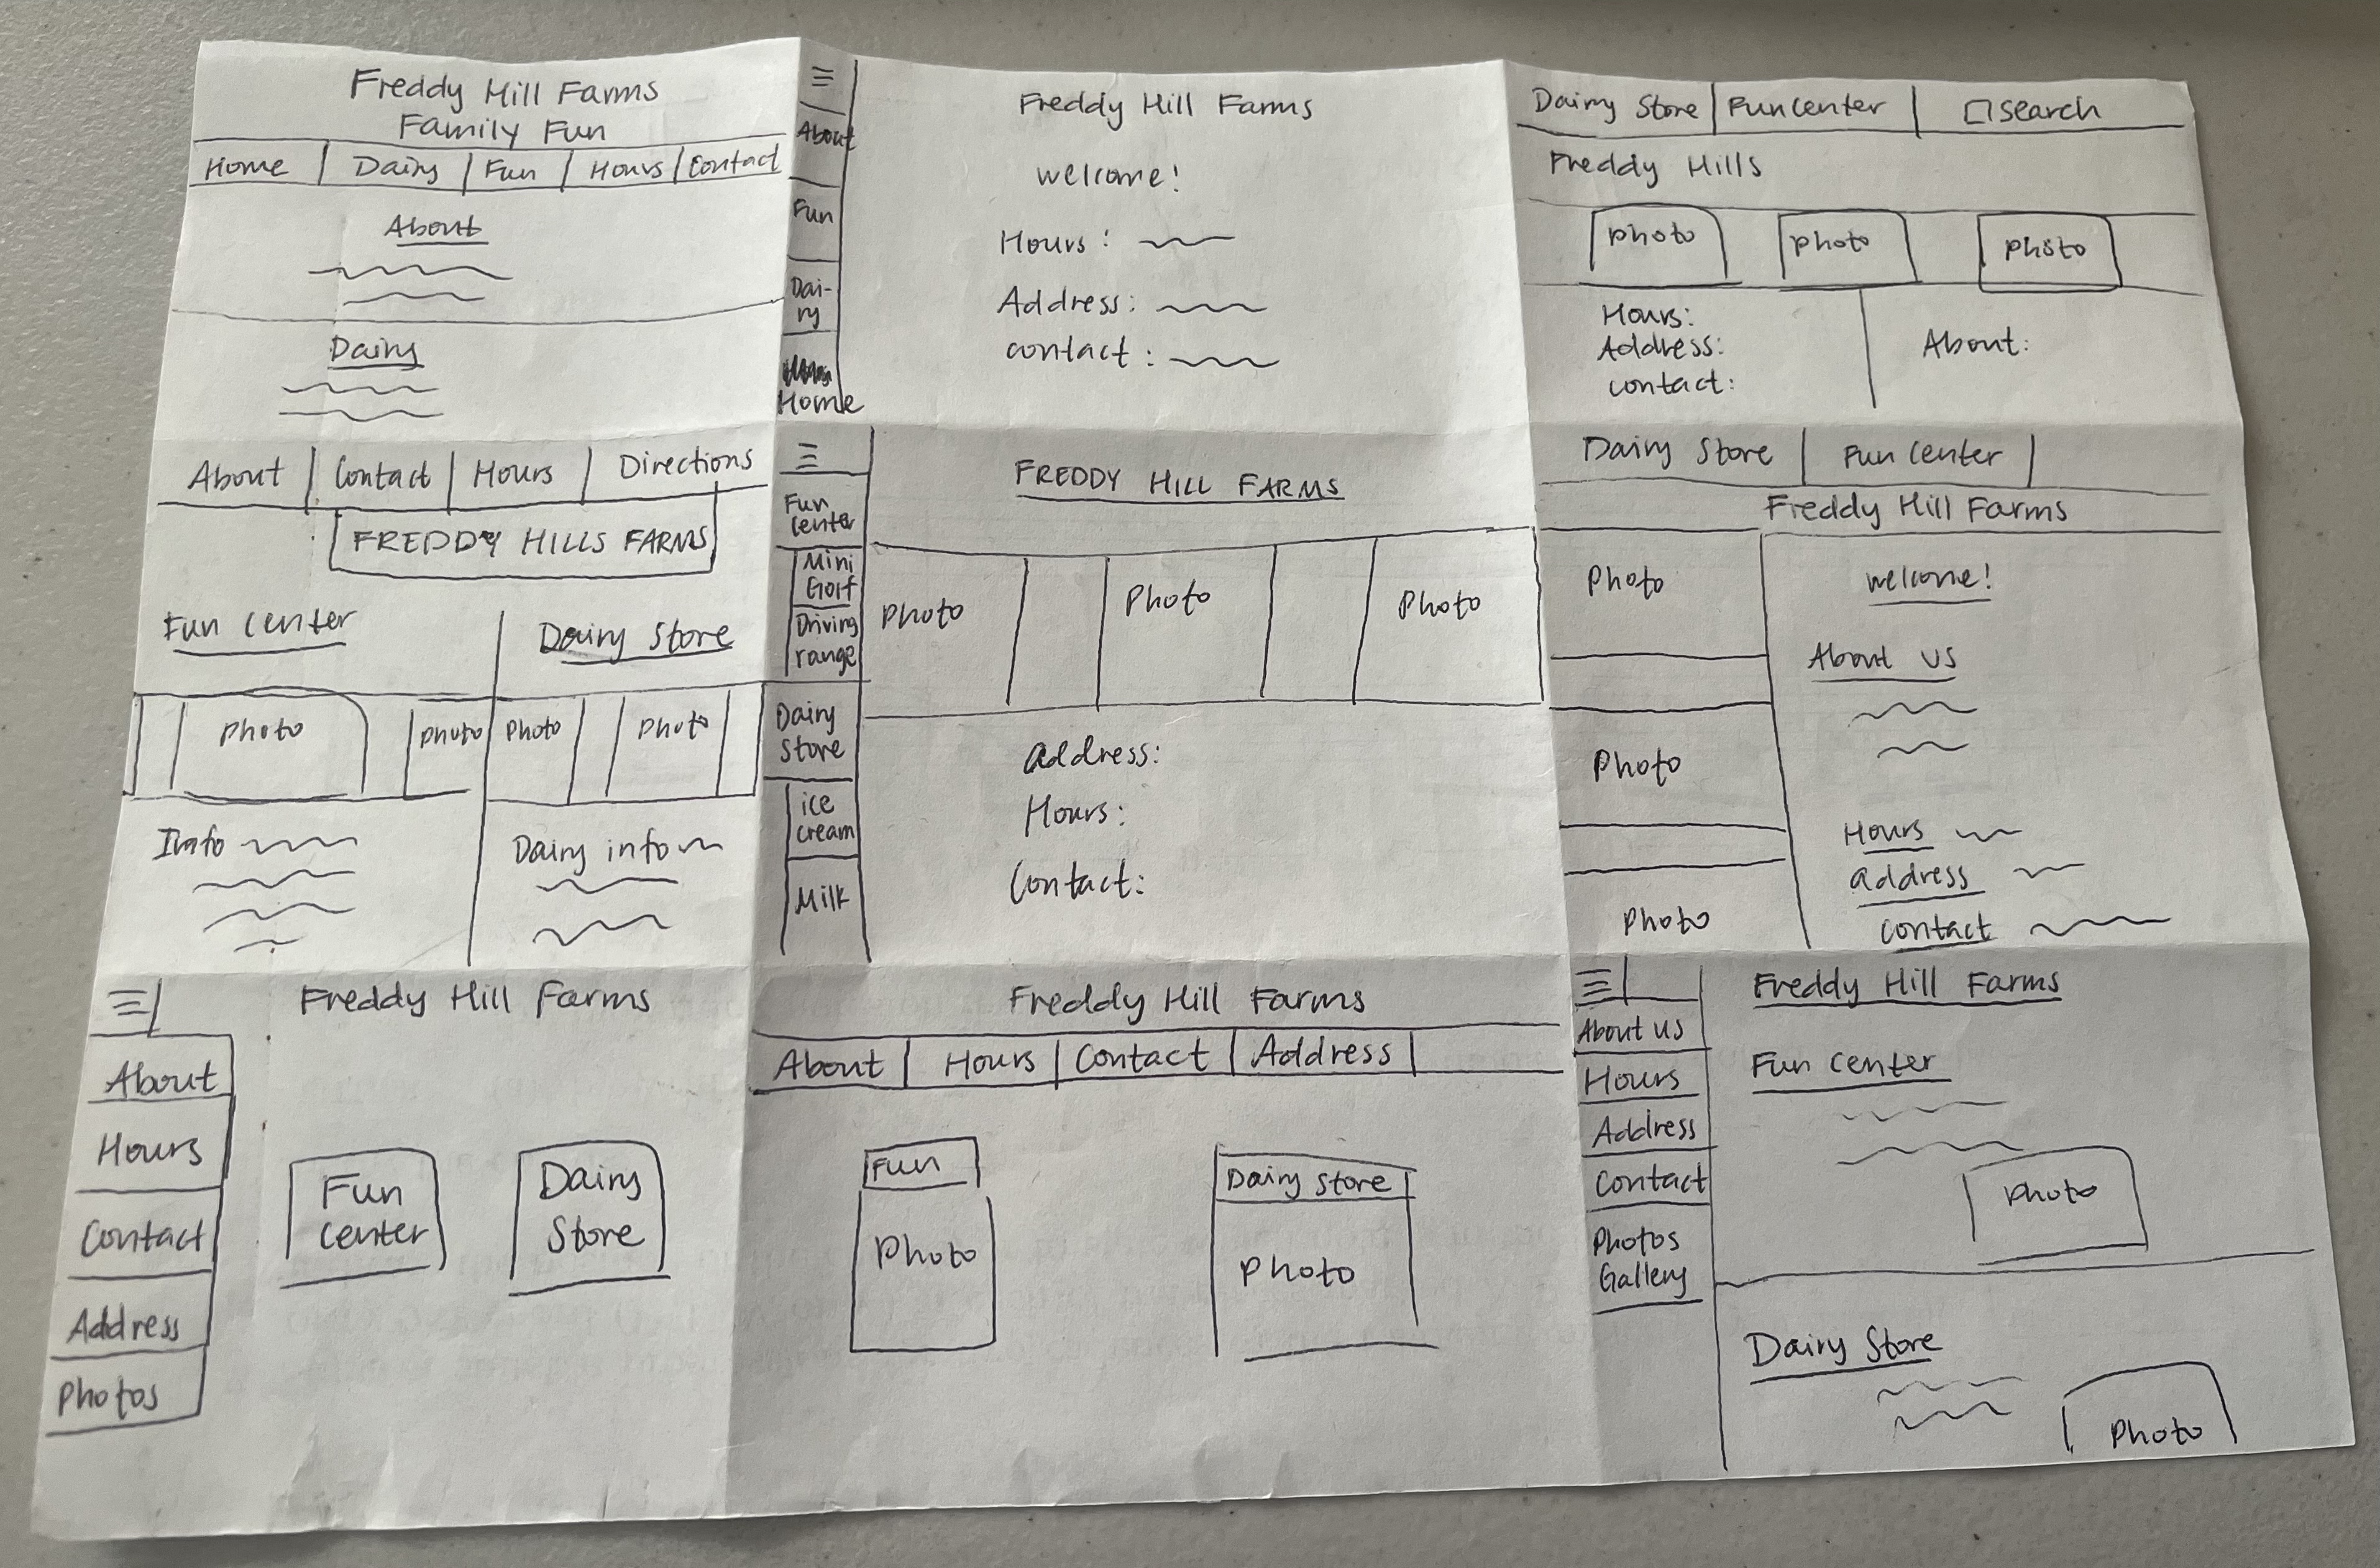 Freddy Hill Farms
Family Fun
Home Dairy Fun Hours Contact
About
Dairy
About
Fun
Dai-
ry
Home
Freddy Hill Farms
welcome!
Hours:
Address:
contact:
Dairy Store Fun Center search
Freddy Hills
photo photo photo
Hours:
Address:
contact:
About:
About Contact Hours Directions
FREDDY HILLS FARMS
Fun Center Dairy Store
photo photo photo photo
Info Dairy info
Fun
Center
Mini
Golf
Driving
range
Dairy
Store
ice
cream
Milk
FREDDY HILL FARMS
Photo Photo Photo
Address:
Hours:
Contact:
Dairy Store Fun Center
Freddy Hill Farms
Photo
Photo
Photo
welcome!
About us
Hours
address
contact
Freddy Hill Farms
About
Hours
Contact
Address
Photos
Fun
Center
Dairy
Store
Freddy Hill Farms
About Hours Contact Address
Fun Dairy Store
Photo Photo
About us
Hours
Address
Contact
Photos
Gallery
Freddy Hill Farms
Fun Center
Photo
Dairy Store
Photo